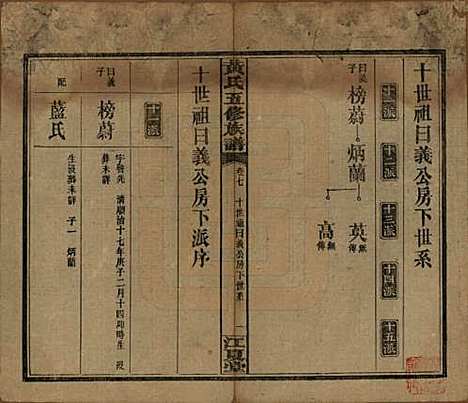 十世祖日義公房下世系
十一派
十二派
十三派
十四派
十五派
日義子
榜蔚
炳蘭
英
無傳
高
無傳
黃氏五修族譜
卷七
十世祖日義公房下世系
一
江夏堂
十世祖日義公房下派序
十二派
日義子
榜蔚
字啓先
清順治十七年庚子二月十四卯時生 歿
葬未詳
配
藍氏
生歿葬未詳 子一 炳蘭